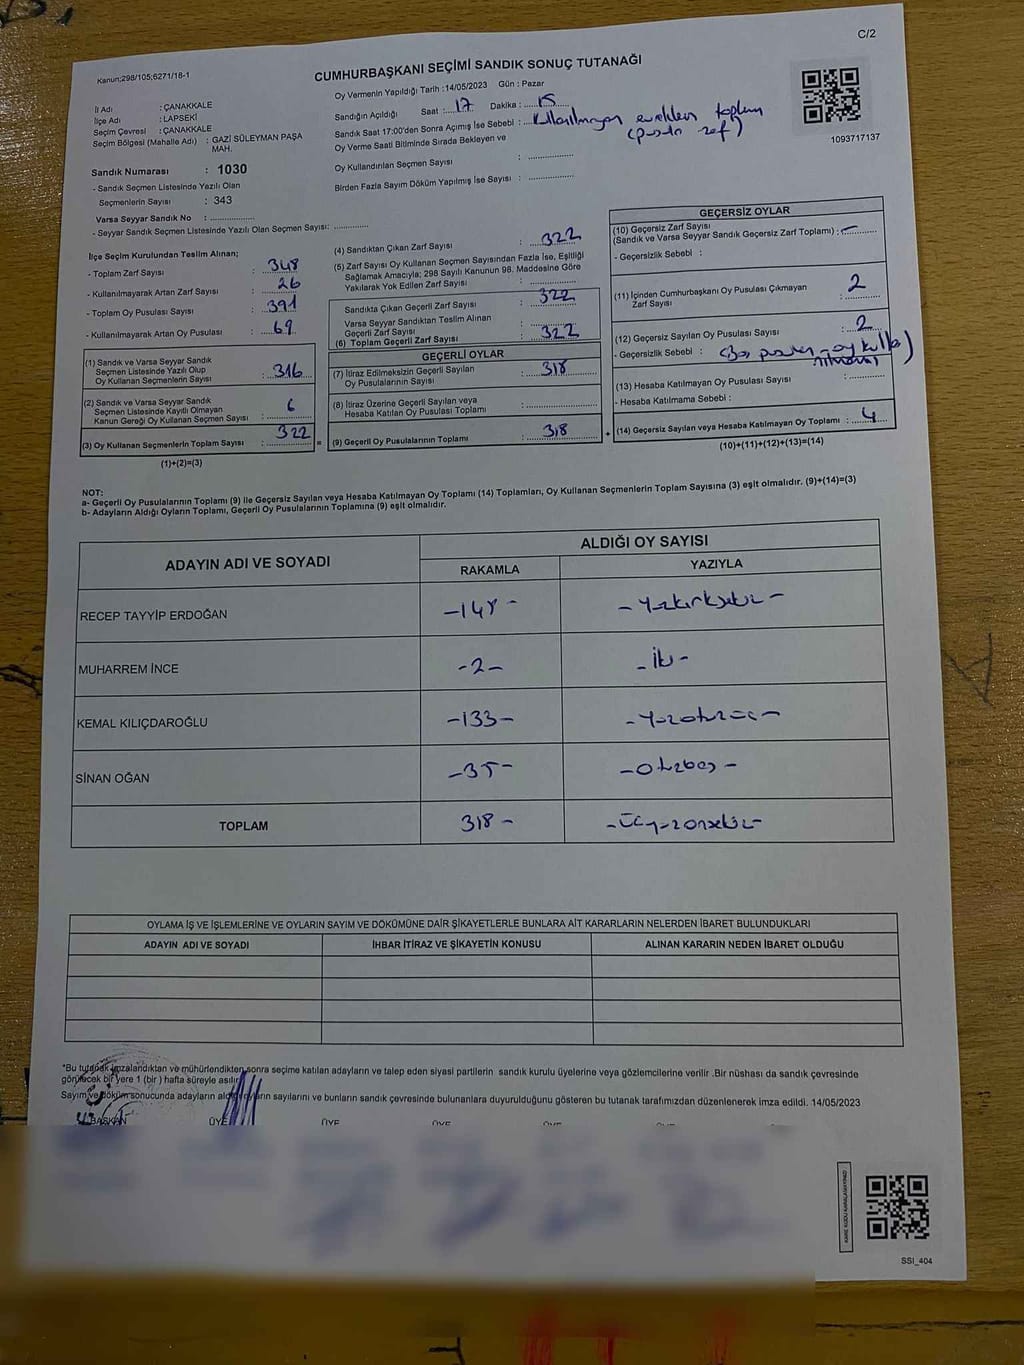 C/2
Kanun;298/105;6271/18-1
CUMHURBAŞKANI SEÇİMİ SANDIK SONUÇ TUTANAĞI
İl Adı : ÇANAKKALE
İlçe Adı : LAPSEKİ
Seçim Çevresi : ÇANAKKALE
Seçim Bölgesi (Mahalle Adı) : GAZİ SÜLEYMAN PAŞA MAH.
Sandık Numarası : 1030
- Sandık Seçmen Listesinde Yazılı Olan
Seçmenlerin Sayısı : 343
Varsa Seyyar Sandık No : ................
- Seyyar Sandık Seçmen Listesinde Yazılı Olan Seçmen Sayısı: ............
Oy Vermenin Yapıldığı Tarih :14/05/2023 Gün : Pazar
Sandığın Açıldığı Saat : 17 Dakika : 15
Sandık Saat 17:00'den Sonra Açımış İse Sebebi : Kullanılmayan evrakların toplamı
(pusula zarf)
Oy Verme Saati Bitiminde Sırada Bekleyen ve
Oy Kullandırılan Seçmen Sayısı : ................
Birden Fazla Sayım Döküm Yapılmış İse Sayısı : ................
1093717137
İlçe Seçim Kurulundan Teslim Alınan;
- Toplam Zarf Sayısı : 348
- Kullanılmayarak Artan Zarf Sayısı : 26
- Toplam Oy Pusulası Sayısı : 391
- Kullanılmayarak Artan Oy Pusulası : 69
(1) Sandık ve Varsa Seyyar Sandık
Seçmen Listesinde Yazılı Olup
Oy Kullanan Seçmenlerin Sayısı : 316
(2) Sandık ve Varsa Seyyar Sandık
Seçmen Listesinde Kayıtlı Olmayan
Kanun Gereği Oy Kullanan Seçmen Sayısı : 6
(3) Oy Kullanan Seçmenlerin Toplam Sayısı : 322 =
(1)+(2)=(3)
(4) Sandıktan Çıkan Zarf Sayısı : 322
(5) Zarf Sayısı Oy Kullanan Seçmen Sayısından Fazla İse, Eşitliği
Sağlamak Amacıyla; 298 Sayılı Kanunun 98. Maddesine Göre
Yakılarak Yok Edilen Zarf Sayısı : ................
Sandıkta Çıkan Geçerli Zarf Sayısı : 322
Varsa Seyyar Sandıktan Teslim Alınan
Geçerli Zarf Sayısı : ................
(6) Toplam Geçerli Zarf Sayısı : 322
GEÇERLİ OYLAR
(7) İtiraz Edilmeksizin Geçerli Sayılan
Oy Pusulalarının Sayısı : 318
(8) İtiraz Üzerine Geçerli Sayılan veya
Hesaba Katılan Oy Pusulası Toplamı : ................
(9) Geçerli Oy Pusulalarının Toplamı : 318 +
GEÇERSİZ OYLAR
(10) Geçersiz Zarf Sayısı
(Sandık ve Varsa Seyyar Sandık Geçersiz Zarf Toplamı) : -
- Geçersizlik Sebebi :
(11) İçinden Cumhurbaşkanı Oy Pusulası Çıkmayan
Zarf Sayısı : 2
(12) Geçersiz Sayılan Oy Pusulası Sayısı : 2
- Geçersizlik Sebebi : (Boş pusula - oy kulla
nılmamış)
(13) Hesaba Katılmayan Oy Pusulası Sayısı : ............
- Hesaba Katılmama Sebebi :
(14) Geçersiz Sayılan veya Hesaba Katılmayan Oy Toplamı : 4
(10)+(11)+(12)+(13)=(14)
NOT:
a- Geçerli Oy Pusulalarının Toplamı (9) ile Geçersiz Sayılan veya Hesaba Katılmayan Oy Toplamı (14) Toplamları, Oy Kullanan Seçmenlerin Toplam Sayısına (3) eşit olmalıdır. (9)+(14)=(3)
b- Adayların Aldığı Oyların Toplamı, Geçerli Oy Pusulalarının Toplamına (9) eşit olmalıdır.
ADAYIN ADI VE SOYADI
ALDIĞI OY SAYISI
RAKAMLA YAZIYLA
RECEP TAYYİP ERDOĞAN -148- -Yüzkırksekiz-
MUHARREM İNCE -2- -İki-
KEMAL KILIÇDAROĞLU -133- -Yüzotuzüç-
SİNAN OĞAN -35- -Otuzbeş-
TOPLAM 318- -Üçyüzonsekiz-
OYLAMA İŞ VE İŞLEMLERİNE VE OYLARIN SAYIM VE DÖKÜMÜNE DAİR ŞİKAYETLERLE BUNLARA AİT KARARLARIN NELERDEN İBARET BULUNDUKLARI
ADAYIN ADI VE SOYADI İHBAR İTİRAZ VE ŞİKAYETİN KONUSU ALINAN KARARIN NEDEN İBARET OLDUĞU
*Bu tutanak imzalandıktan ve mühürlendikten sonra seçime katılan adayların ve talep eden siyasi partilerin sandık kurulu üyelerine veya gözlemcilerine verilir .Bir nüshası da sandık çevresinde
görülecek bir yere 1 (bir ) hafta süreyle asılır.
Sayım ve döküm sonucunda adayların aldığı oyların sayılarını ve bunların sandık çevresinde bulunanlara duyurulduğunu gösteren bu tutanak tarafımızdan düzenlenerek imza edildi. 14/05/2023
BAŞKAN ÜYE ÜYE ÜYE
KARE KODU KARALAMAYINIZ!
SSI_404